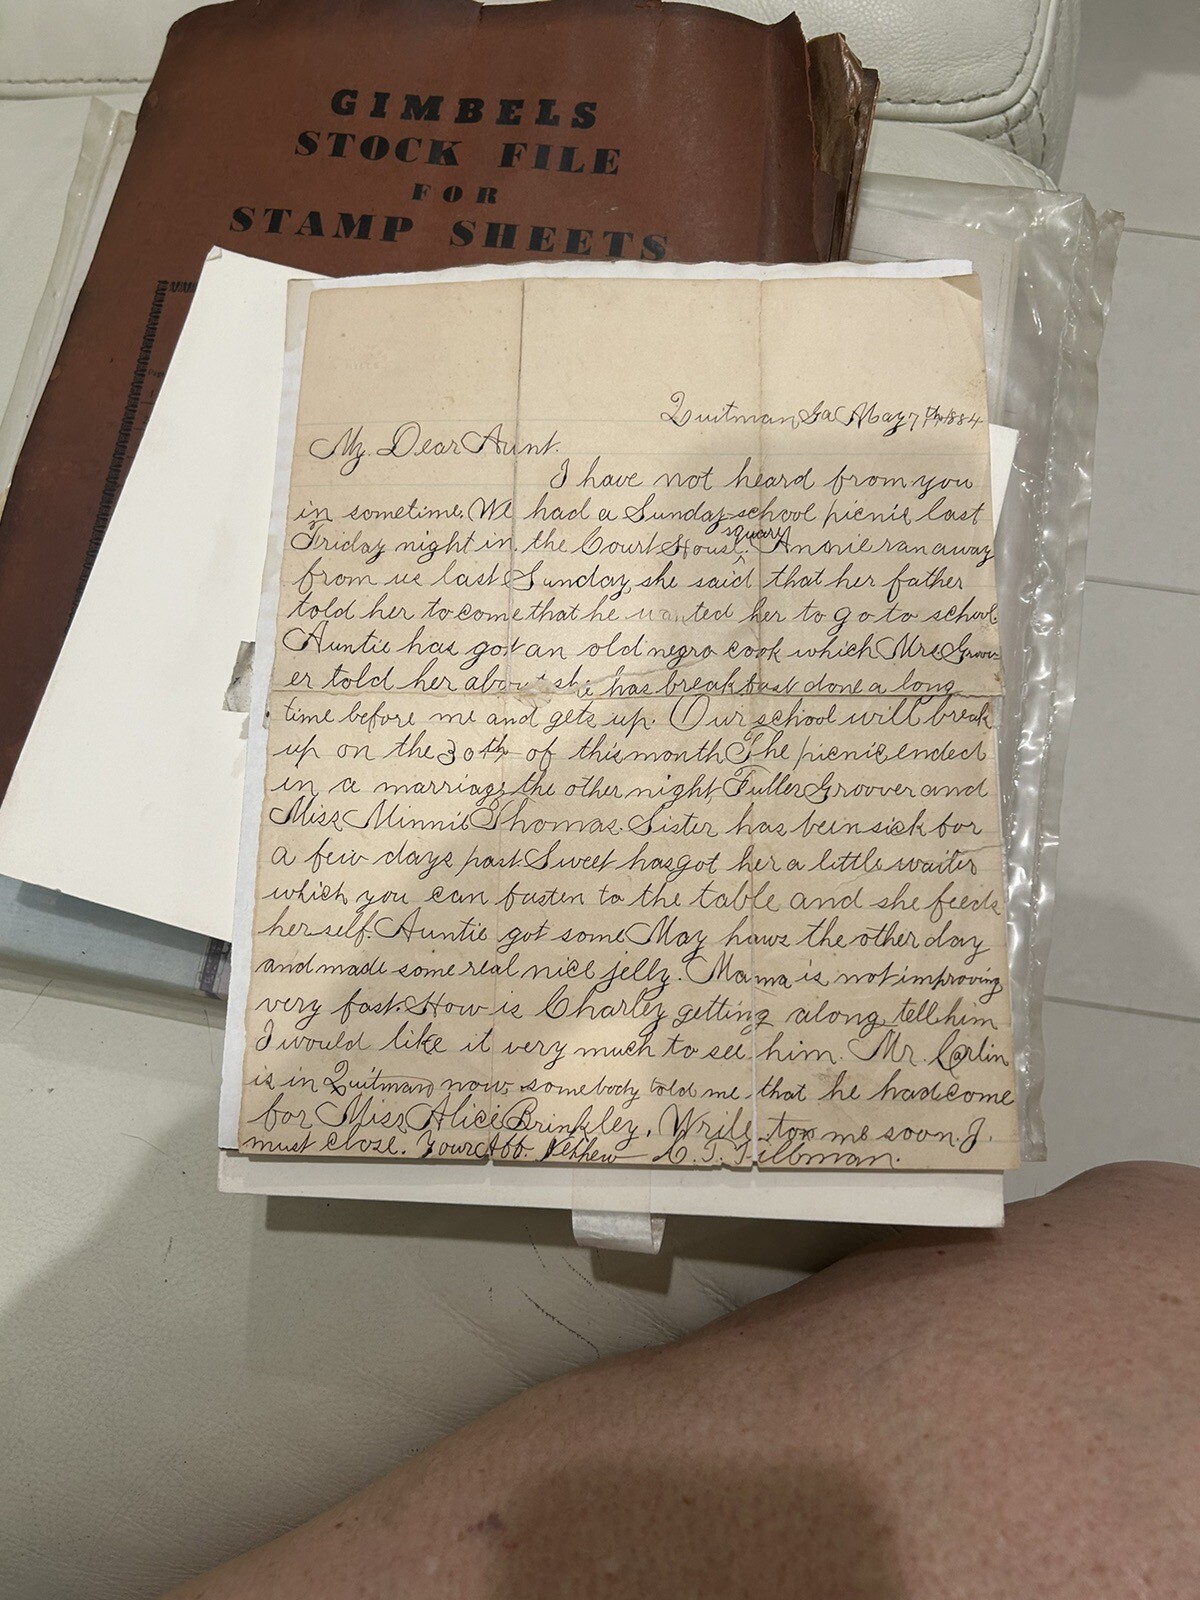 GIMBELS
STOCK FILE
FOR
STAMP SHEETS
Quitman Ga May 7th 1884
My Dear Aunt.
I have not heard from you
in sometime. We had a Sunday school picnic last
square
Friday night in the Court House. Annie ran away
from us last Sunday she said that her father
told her to come that he wanted her to go to school.
Auntie has got an old negro cook which Mrs Groov-
er told her about she has breakfast done a long
time before me and gets up. Our school will break
up on the 30th of this month The picnic ended
in a marriage the other night, Fuller Groover and
Miss Minnie Thomas. Sister has been sick for
a few days past Sweet has got her a little waiter
which you can fasten to the table and she feeds
her self. Auntie got some May haws the other day
and made some real nice jelly. Mama is not improving
very fast. How is Charley getting along tell him
I would like it very much to see him. Mr. Carlin
is in Quitman now, somebody told me that he had come
for Miss Alice Brinkley. Write to me soon. I
must close. Your Aff. Nephew C. T. Tillman.